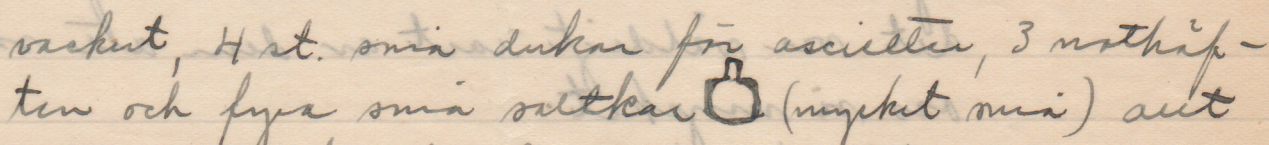 vackert, 4 st. små dukar för assietter, 3 nothäf-
ten och fyra små saltkar (mycket små) allt